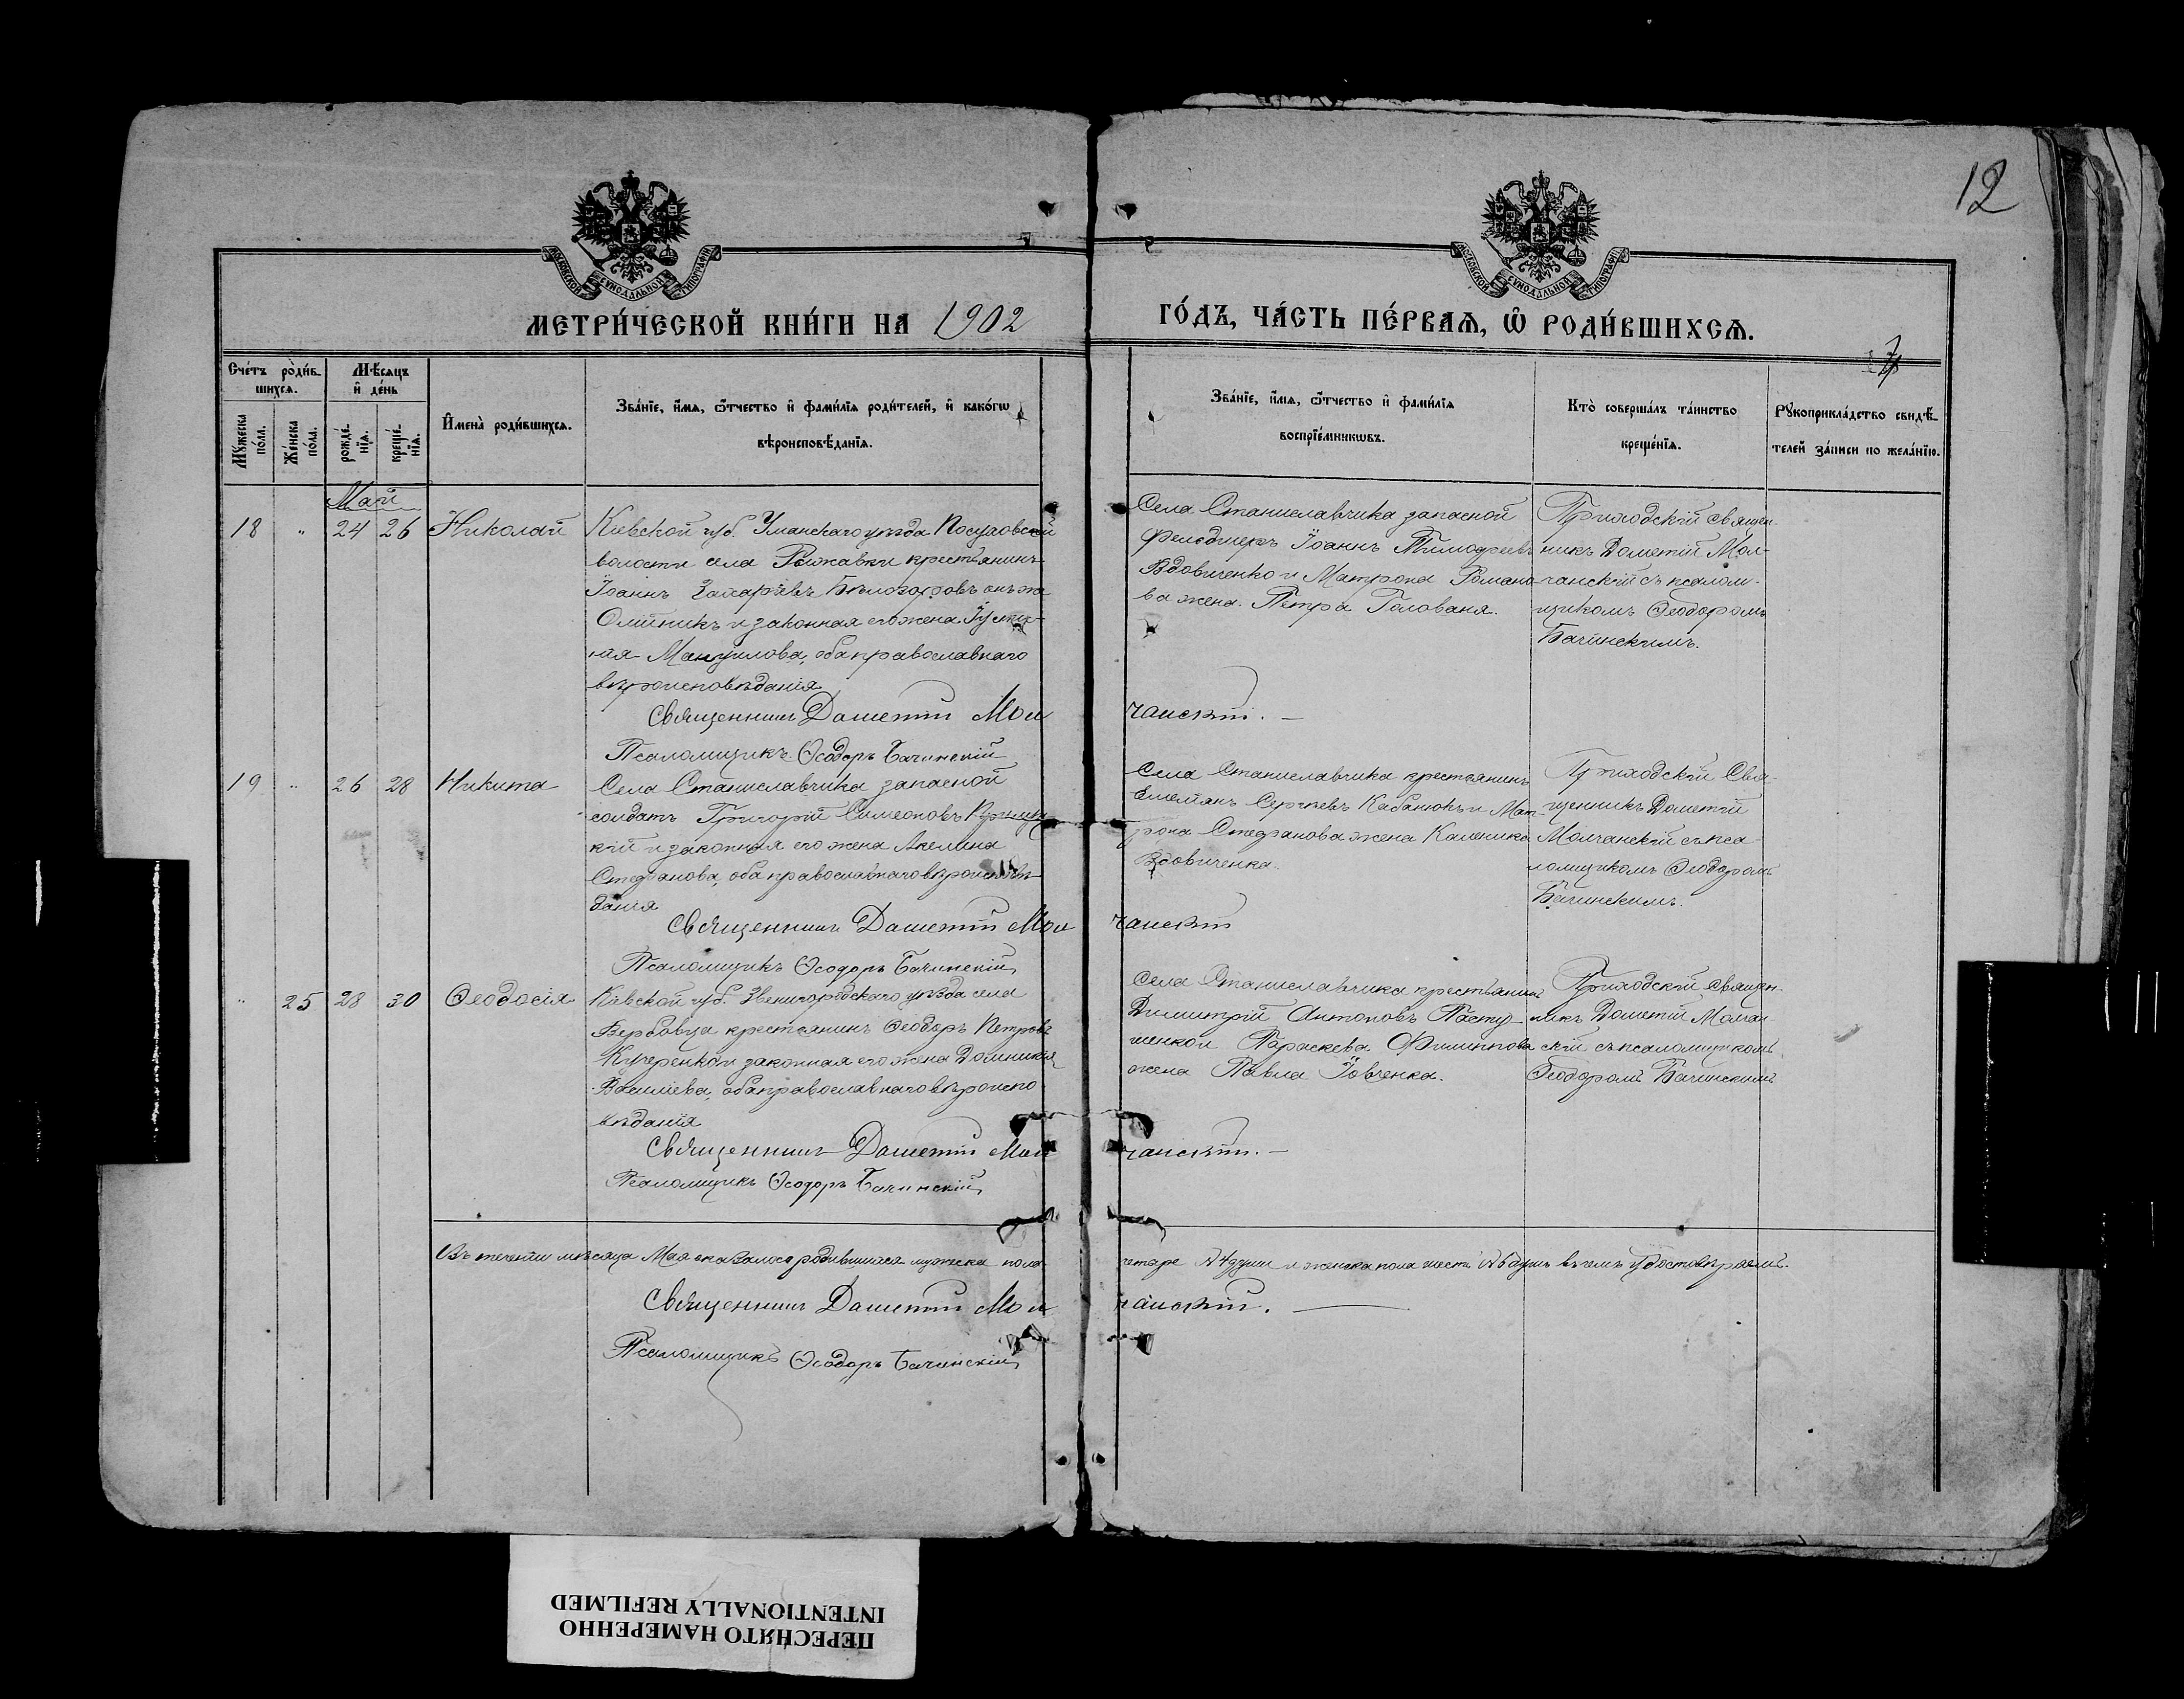 12
МОСКОВСКОЙ СѴНОДАЛЬНОЙ ТИПОГРАФІИ
МОСКОВСКОЙ СѴНОДАЛЬНОЙ ТИПОГРАФІИ
МЕТРИ́ЧЕСКОЙ КНИ́ГИ НА 1902
ГО́ДЪ, ЧА́СТЬ ПЕ́РВАѦ, Ѽ РОДИ́ВШИХСѦ.
Сче́тъ роди́в-
шихсѧ.
Мѣ́сяцъ
и҆ де́нь
Мꙋ́жеска
по́ла.
Же́нска
по́ла.
рожде́-
нїѧ.
креще́-
нїѧ.
И҆мена̀ роди́вшихсѧ.
Зва́нїе, и҆́мѧ, ѻ҆́тчество и҆ фами́лїѧ роди́телей, и҆ како́гѡ
вѣроисповѣ́данїѧ.
Зва́нїе, и҆́мѧ, ѻ҆́тчество и҆ фами́лїѧ
воспрїе́мникѡвъ.
Кто̀ соверша́лъ та́инство
креще́нїѧ.
Рꙋкоприкла́дство свидѣ́-
телей за́писи по жела́нїю.
Май
18 " 24 26 Николай
Кіевской губ. Уманскаго уѣзда Посуховской
волости села Рыжавки крестьянинъ
Іоаннъ Захаріевъ Бѣлозоровъ онъ же
Олійникъ и законная его жена Іусти-
нія Мануилова, оба православнаго
вѣроисповѣданія
Села Станиславчика запасной
фельдшеръ Іоаннъ Тимофеевъ
Вдовиченко и Матрона Романо-
ва жена Петра Голованя.
Приходскій священ-
никъ Дометій Мол-
чанскій съ псалом-
щикомъ Ѳеодоромъ
Бачинскимъ.
Священникъ Дометій Молчанскій. —
Псаломщикъ Ѳеодоръ Бачинскій
19 " 26 28 Никита
Села Станиславчика запасной
солдатъ Григорій Симеоновъ
кій и законная его жена Акелина
Стефанова, оба православнаго вѣроисповѣ-
данія
Села Станиславчика крестьянинъ
Емельянъ Сергѣевъ Кабанюкъ и Мат-
рона Стефанова жена Каленика
Вдовиченка.
Приходскій Свя-
щенникъ Дометій
Молчанскій съ пса-
ломщикомъ Ѳеодоромъ
Бачинскимъ.
Священникъ Дометій Молчанскій
Псаломщикъ Ѳеодоръ Бачинскій
" 25 28 30 Ѳеодосія
Кіевской губ. Звенигородскаго уѣзда села
Вербовца крестьянинъ Ѳеодоръ Петровъ
Кучеренко и законная его жена Домникія
Василіева, оба православнаго вѣроиспо-
вѣданія
Села Станиславчика крестьянинъ
Димитрій Антоновъ Пасту-
шенко и Параскева Филиппова
жена Павла Іовченка.
Приходскій Священ-
никъ Дометій Молчан-
скій съ псаломщикомъ
Ѳеодоромъ Бачинскимъ
Священникъ Дометій Молчанскій. —
Псаломщикъ Ѳеодоръ Бачинскій
Въ теченіи мѣсяца Мая оказалось родившихся мужеска пола четыре № 4 души и женска пола шесть № 6 душъ въ чемъ удостовѣряемъ.
Священникъ Дометій Молчанскій. —
Псаломщикъ Ѳеодоръ Бачинскій
ПЕРЕСНЯТО НАМЕРЕННО
INTENTIONALLY REFILMED